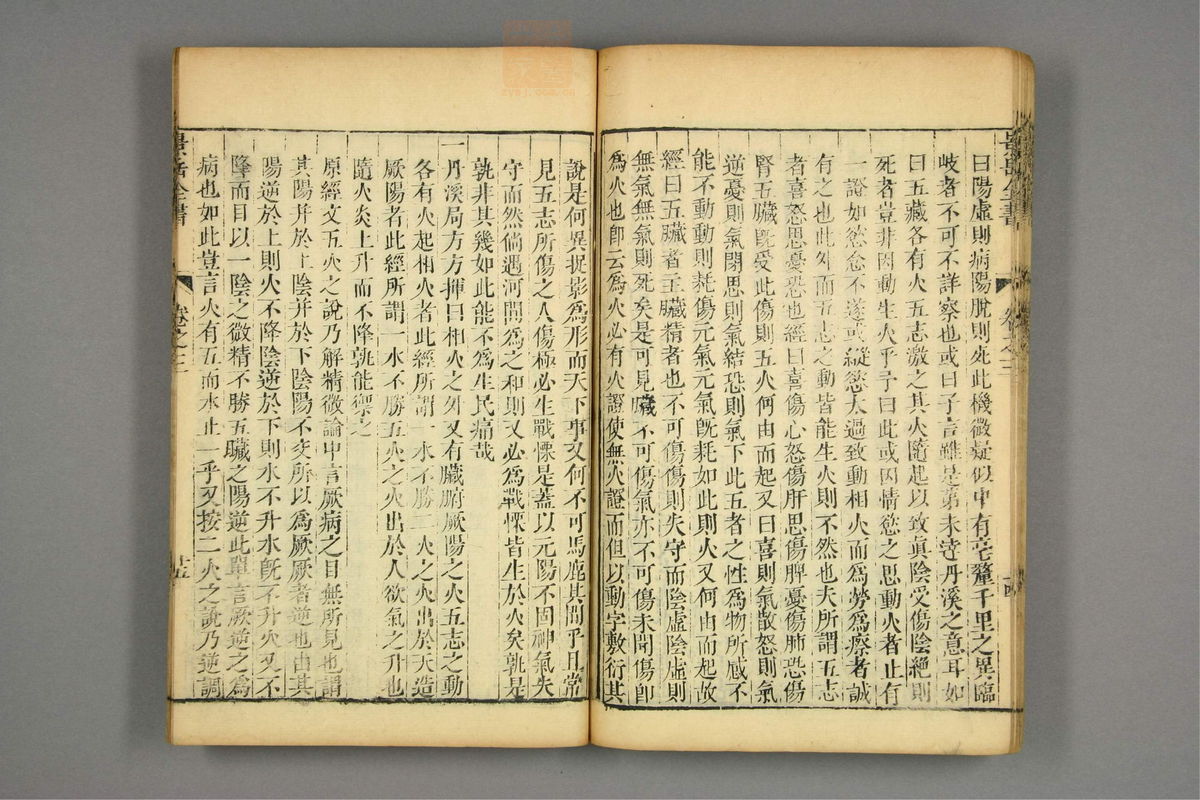 曰陽虛則病陽脫則死此機微疑似中有亳釐千里之異臨
岐者不可不詳察也或曰子言雖是第未達丹溪之意耳如
曰五藏各有火五志激之其火隨起以致眞陰受傷陰絕則
死者豈非因動生火乎予曰此或因情慾之思動火者止有
一證如慾念不遂或縱慾太過致動相火而為勞為瘵者誠
有之也此外而五志之動皆能生火則不然也夫所謂五志
者喜怒思憂恐也經曰喜傷心怒傷肝思傷脾憂傷肺恐傷
腎五臟旣受此傷則五火何由而起又曰喜則氣散怒則氣
逆憂則氣閉思則氣結恐則氣下此五者之性為物所感不
能不動動則耗傷元氣元氣旣耗如此則火又何由而起故
經曰五臟者主臟精者也不可傷傷則失守而陰虛陰虛則
無氣無氣則死矣是可見臟不可傷氣亦不可傷未聞傷卽
爲火也卽云爲火必有火證使無火證而但以動字敷衍其
景岳全書
卷之三
十四
說是何異捉影爲形而天下事又何不可馬鹿其間乎且常
見五志所傷之人傷極必生戰慄是蓋以元陽不固神氣失
守而然倘遇河間爲之和則又必爲戰慄皆生於火矣孰是
孰非其幾如此能不爲生民痛哉
一丹溪局方方揮曰相火之外又有臟腑厥陽之火五志之動
各有火起相火者此經所謂一水不勝二火之火出於天造
厥陽者此經所謂一水不勝五火之火出於人欲氣之升也
隨火炎上升而不降孰能禦之
原經文五火之說乃解精微論中言厥病之目無所見也謂
其陽并於上陰并於下陰陽不交所以爲厥厥者逆也由其
陽逆於上則火不降陰逆於下則水不升水旣不升火又不
降而目以一陰之微精不勝五臟之陽逆此單言厥逆之爲
病也如此豈言火有五而水止一乎又按二火之說乃逆調
景岳全書
卷之三
十五